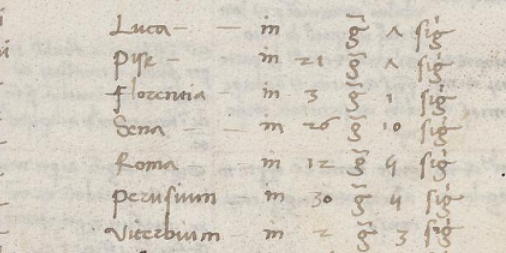 Luca – – in g̃ ʌ sig̃
Pise – in 21 g̃ ʌ sig̃
Florentia – in 3 g̃ 1 sig̃
Sena – – in 26 g̃ 10 sig̃
Roma – in 12 g̃ sig̃
Perusium in 30 g̃ sig̃
Viterbium in 2 g̃ 3 sig̃